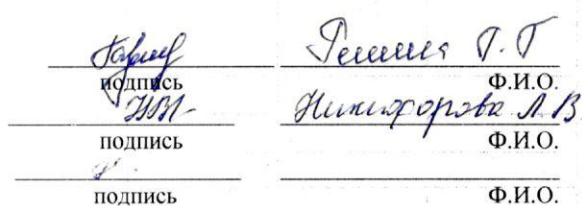 Г. Г
подпись Ф.И.О.
Никифорова Л. В.
подпись Ф.И.О.
подпись Ф.И.О.